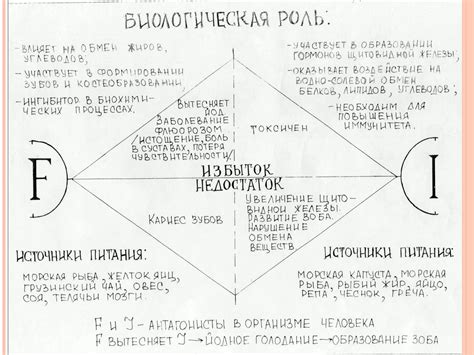 БИОЛОГИЧЕСКАЯ РОЛЬ:
- ВЛИЯЕТ НА ОБМЕН ЖИРОВ,
УГЛЕВОДОВ;
- УЧАСТВУЕТ В ФОРМИРОВАНИИ
ЗУБОВ И КОСТЕОБРАЗОВАНИИ.
- ИНГИБИТОР В БИОХИМИ-
ЧЕСКИХ ПРОЦЕССАХ.
- УЧАСТВУЕТ В ОБРАЗОВАНИИ
ГОРМОНОВ ЩИТОВИДНОЙ ЖЕЛЕЗЫ;
- ОКАЗЫВАЕТ ВОЗДЕЙСТВИЕ НА
ВОДНО-СОЛЕВОЙ ОБМЕН
БЕЛКОВ, ЛИПИДОВ, УГЛЕВОДОВ;
- НЕОБХОДИМ ДЛЯ
ПОВЫШЕНИЯ
ИММУНИТЕТА.
ВЫТЕСНЯЕТ
ЙОД.
ЗАБОЛЕВАНИЕ
ФЛЮОРОЗОМ
/ИСТОЩЕНИЕ, БОЛЬ
В СУСТАВАХ, ПОТЕРЯ
ЧУВСТВИТЕЛЬНОСТИ/
ТОКСИЧЕН
F
ИЗБЫТОК
НЕДОСТАТОК
I
КАРИЕС ЗУБОВ
УВЕЛИЧЕНИЕ ЩИТО-
ВИДНОЙ ЖЕЛЕЗЫ.
РАЗВИТИЕ ЗОБА.
НАРУШЕНИЕ
ОБМЕНА
ВЕЩЕСТВ.
ИСТОЧНИКИ ПИТАНИЯ:
МОРСКАЯ РЫБА, ЖЕЛТОК ЯИЦ,
ГРУЗИНСКИЙ ЧАЙ, ОВЕС,
СОЯ, ТЕЛЯЧЬИ МОЗГИ.
ИСТОЧНИКИ ПИТАНИЯ:
МОРСКАЯ КАПУСТА, МОРСКАЯ
РЫБА, РЫБИЙ ЖИР, ЯЙЦО,
РЕПА, ЧЕСНОК, ГРЕЧА.
F И I - АНТАГОНИСТЫ В ОРГАНИЗМЕ ЧЕЛОВЕКА
F ВЫТЕСНЯЕТ I → ЙОДНОЕ ГОЛОДАНИЕ → ОБРАЗОВАНИЕ ЗОБА